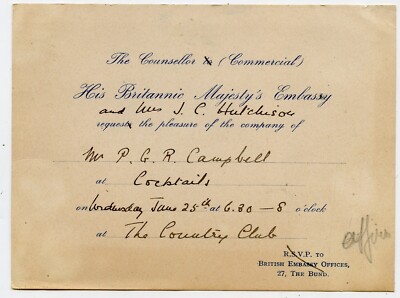 The Counsellor (Commercial)
His Britannic Majesty's Embassy
and Mrs J. C. Hutchison
request the pleasure of the company of
Mr P. G. R. Campbell
at Cocktails
on Wednesday June 25th at 6.30 – 8 o'clock
at The Country Club
R.S.V.P. TO
BRITISH EMBASSY OFFICES,
27, THE BUND.